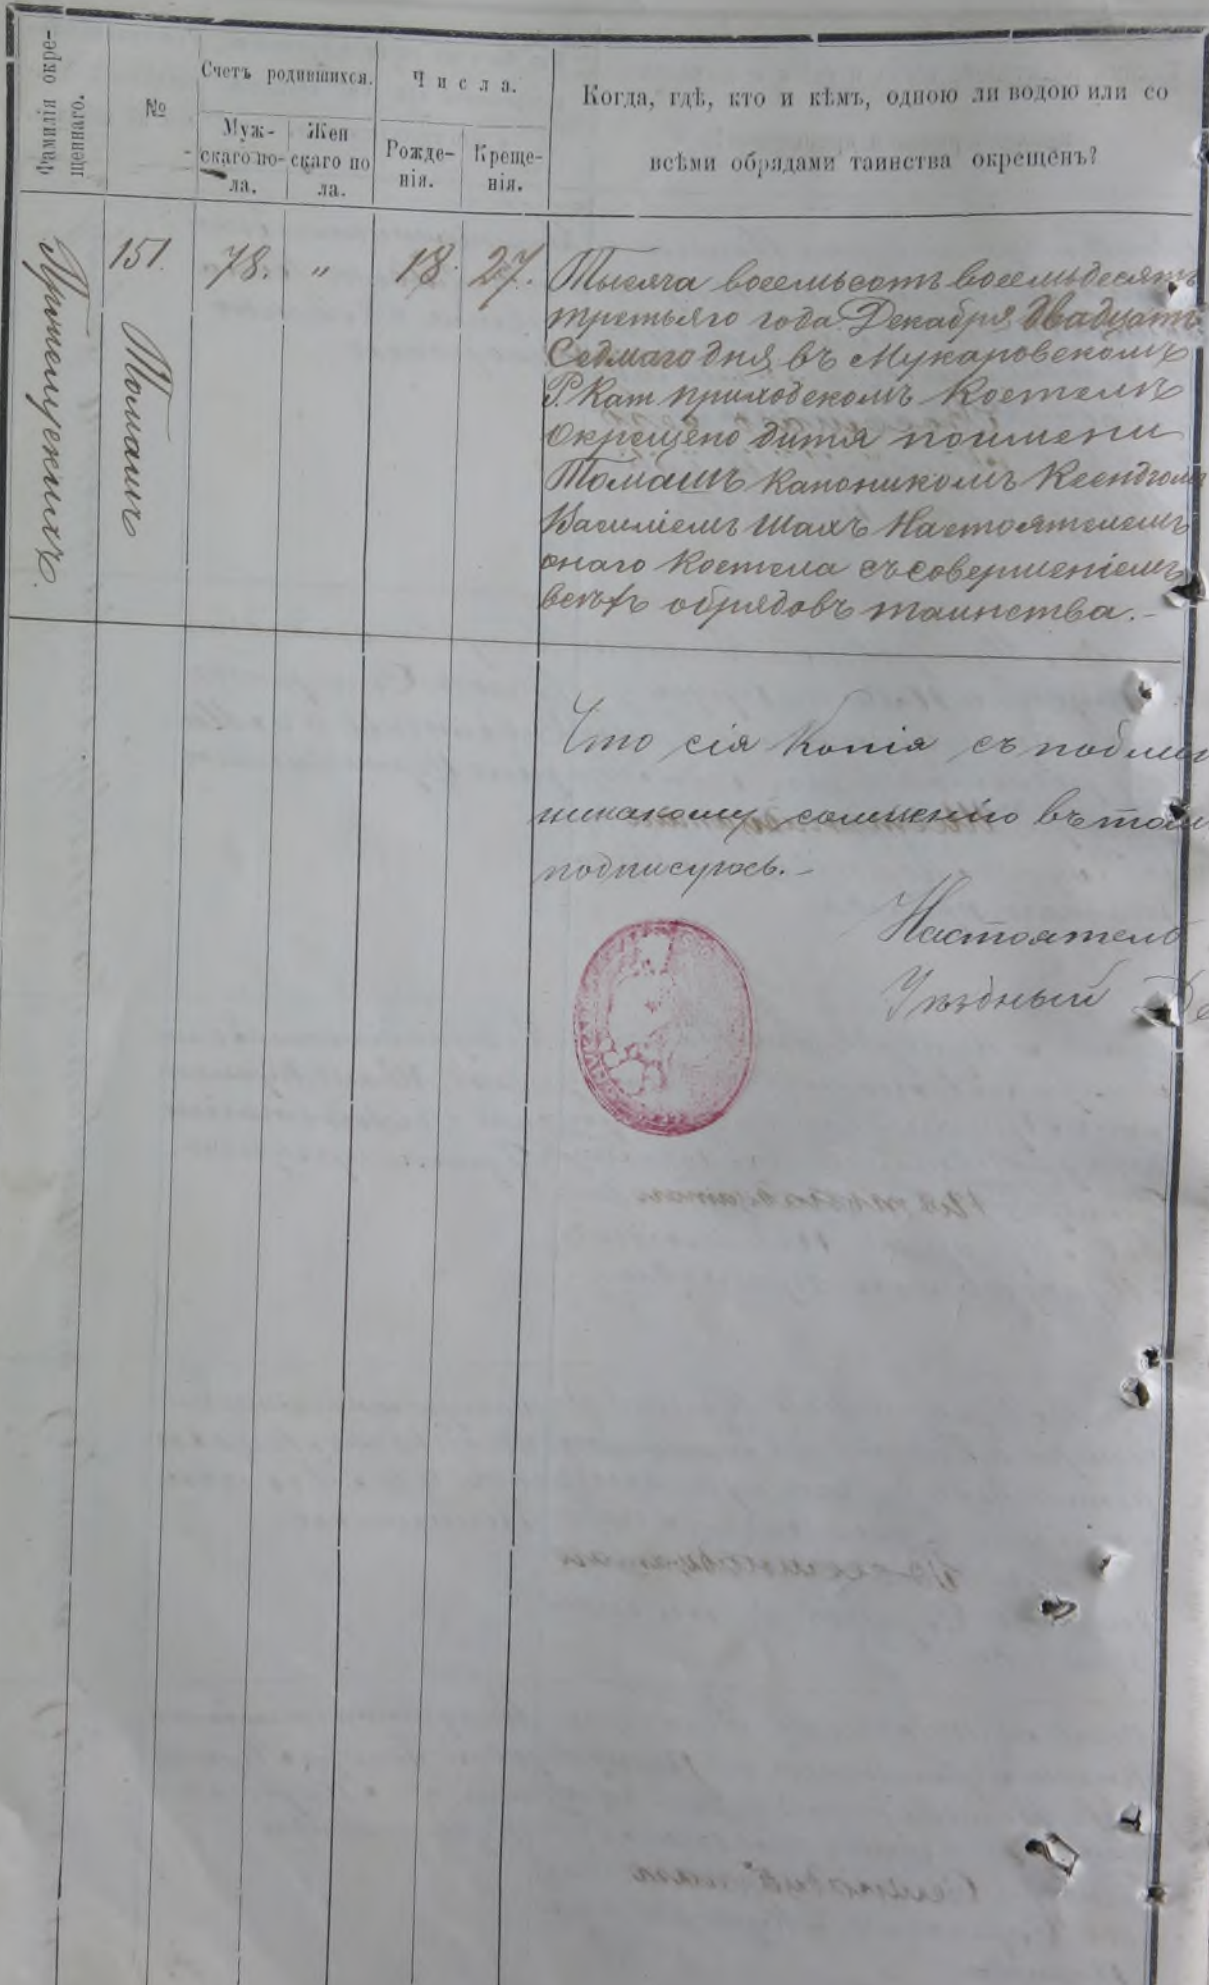 Фамилія окре-
щеннаго.
№
Счетъ родившихся.
Муж-
скаго по-
ла.
Жен
скаго по
ла.
Числа.
Рожде-
нія.
Креще-
нія.
Когда, гдѣ, кто и кѣмъ, одною ли водою или со
всѣми обрядами таинства окрещенъ?
151.
Томашъ
78.
"
18.
27.
Тысяча восемьсотъ восемьдесятъ
третьяго года Декабря двадцать
Седмаго дня въ Мукаровскомъ
Р. Кат приходскомъ Костелѣ
Окрещено дитя поимени
Томашъ Каноникомъ Ксендзомъ
Василіемъ Шахъ Настоятелемъ
онаго Костела съ совершеніемъ
всѣхъ обрядовъ таинства.-
Что сія Копія съ подлин
никакому сомнѣнію въ том
подписуюсь.-
Настоятель
Уѣздный Де